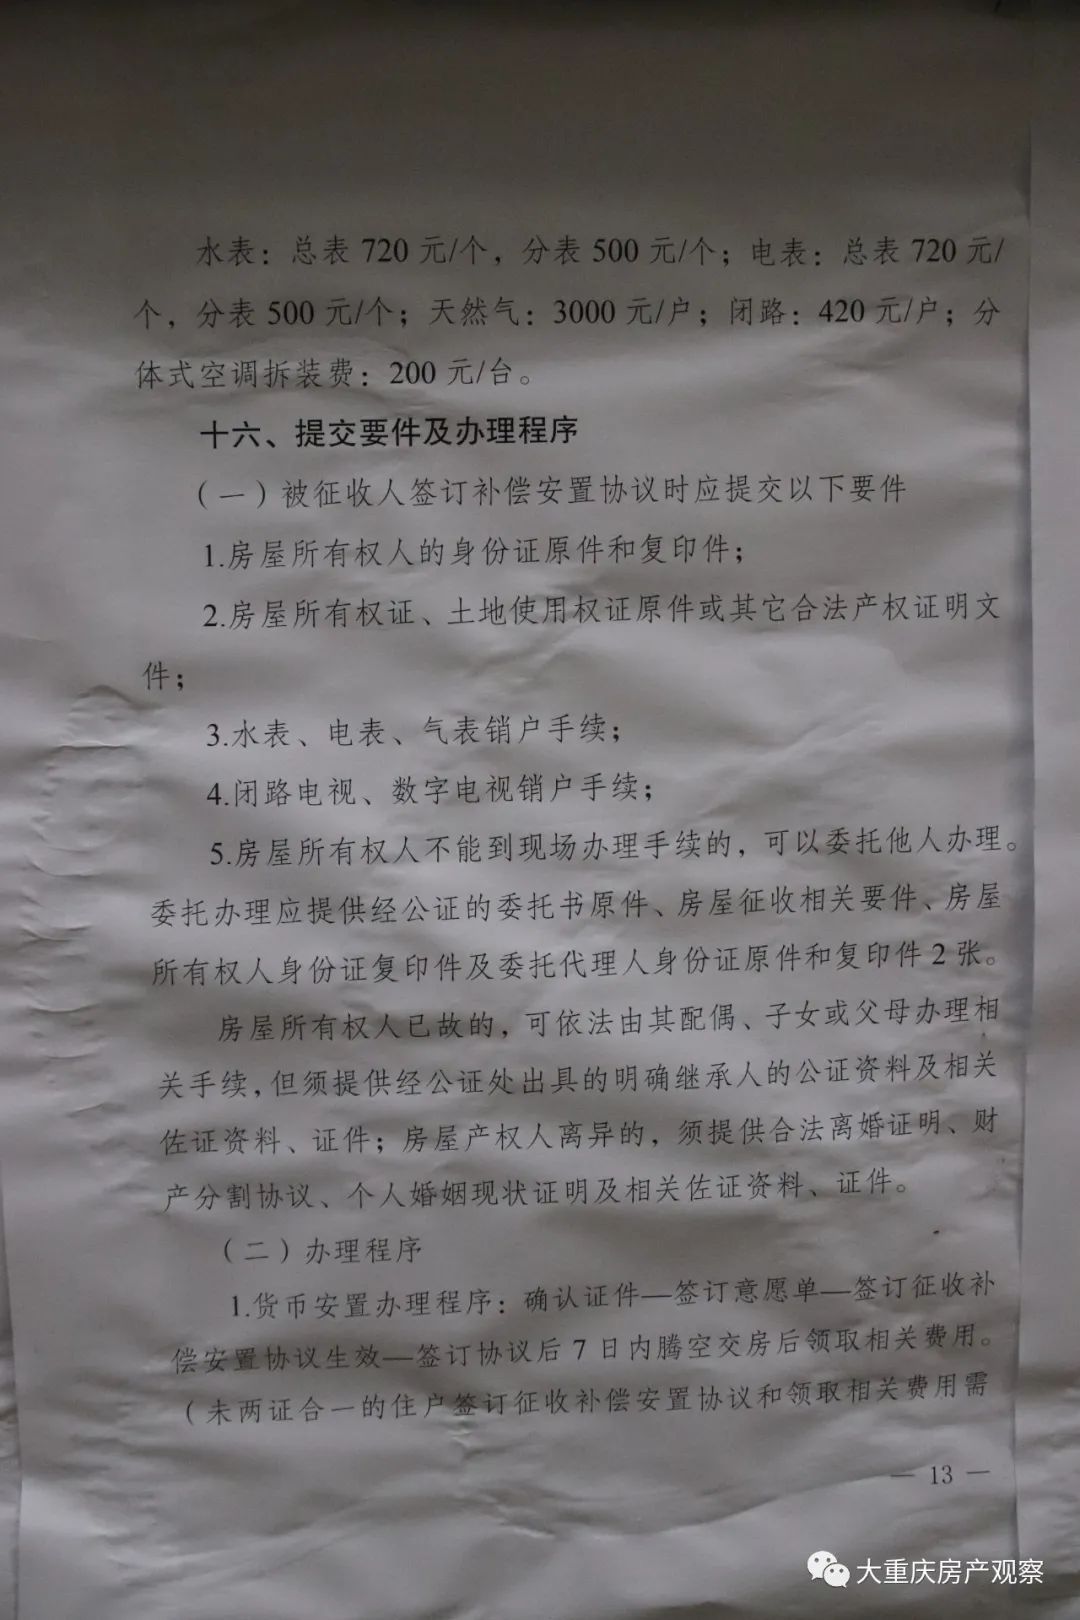 水表：总表 720 元/个，分表 500 元/个；电表：总表 720 元/
个，分表 500 元/个；天然气：3000 元/户；闭路：420 元/户；分
体式空调拆装费：200 元/台。
十六、提交要件及办理程序
（一）被征收人签订补偿安置协议时应提交以下要件
1.房屋所有权人的身份证原件和复印件；
2.房屋所有权证、土地使用权证原件或其它合法产权证明文
件；
3.水表、电表、气表销户手续；
4.闭路电视、数字电视销户手续；
5.房屋所有权人不能到现场办理手续的，可以委托他人办理。
委托办理应提供经公证的委托书原件、房屋征收相关要件、房屋
所有权人身份证复印件及委托代理人身份证原件和复印件 2 张。
房屋所有权人已故的，可依法由其配偶、子女或父母办理相
关手续，但须提供经公证处出具的明确继承人的公证资料及相关
佐证资料、证件；房屋产权人离异的，须提供合法离婚证明、财
产分割协议、个人婚姻现状证明及相关佐证资料、证件。
（二）办理程序
1.货币安置办理程序：确认证件—签订意愿单—签订征收补
偿安置协议生效—签订协议后 7 日内腾空交房后领取相关费用。
（未两证合一的住户签订征收补偿安置协议和领取相关费用需
— 13 —
大重庆房产观察